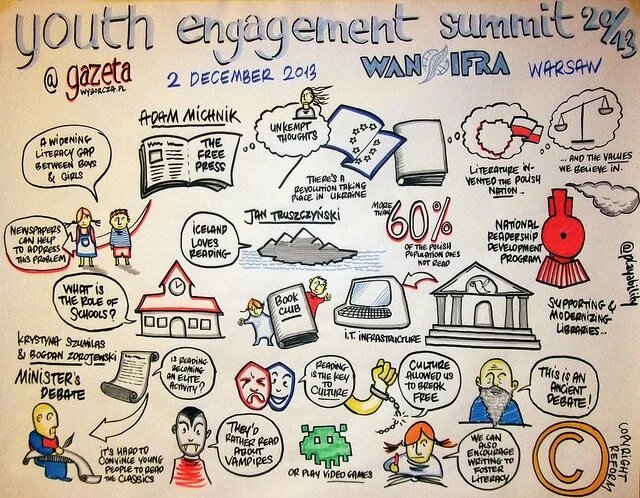 youth engagement summit 2013
@ gazeta
WYBORCZA.PL
2 DECEMBER 2013
WAN IFRA
WARSAW
A WIDENING
LITERACY GAP
BETWEEN BOYS
& GIRLS
ADAM MICHNIK
THE
FREE
PRESS
UNKEMPT
THOUGHTS
THERE'S A
REVOLUTION TAKING
PLACE IN UKRAINE
LITERATURE IN-
VENTED THE POLISH
NATION...
... AND THE VALUES
WE BELIEVE IN.
NEWSPAPERS
CAN HELP
TO ADDRESS
THIS PROBLEM
ICELAND
LOVES
READING
JAN TRUSZCZYŃSKI
MORE
THAN
60%
OF THE POLISH
POPULATION DOES
NOT READ
NATIONAL
READERSHIP
DEVELOPMENT
PROGRAM
@playability
WHAT IS
THE ROLE OF
SCHOOLS?
BOOK
CLUB
I.T. INFRASTRUCTURE
SUPPORTING &
MODERNIZING
LIBRARIES...
KRYSTYNA SZUMILAS
& BOGDAN ZDROJEWSKI
MINISTER'S
DEBATE
IS READING
BECOMING
AN ELITE
ACTIVITY?
READING
IS THE KEY
TO
CULTURE
CULTURE
ALLOWED US
TO BREAK
FREE
THIS IS AN
ANCIENT
DEBATE!
IT'S HARD TO
CONVINCE YOUNG
PEOPLE TO READ
THE CLASSICS
THEY'D
RATHER READ
ABOUT
VAMPIRES
OR PLAY VIDEO GAMES
WE CAN
ALSO
ENCOURAGE
WRITING TO
FOSTER
LITERACY
C
COPYRIGHT
REFORM